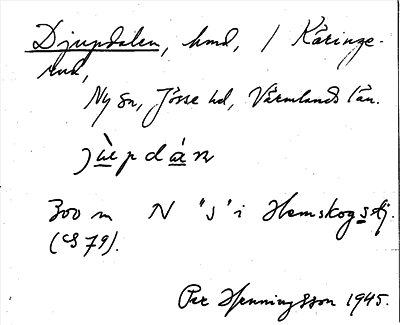 Djupdalen, hmd, / Käringe-
rud,
Ny sn, Jösse hd, Värmlands län.
jùpdán
300 m N "s" i Hemskogstj.
(CS 79).
Per Henningsson 1945.